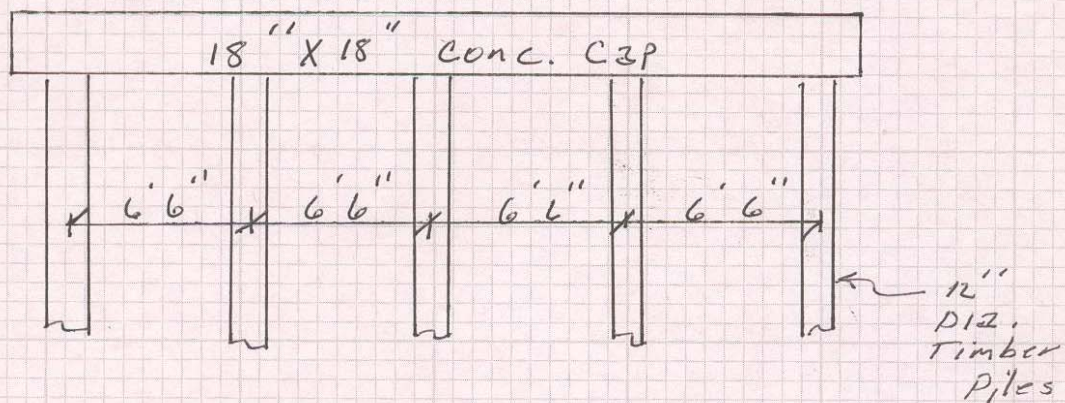 18" X 18" Conc. Cap
6'6" 6'6" 6'6" 6'6"
12"
Dia.
Timber
Piles